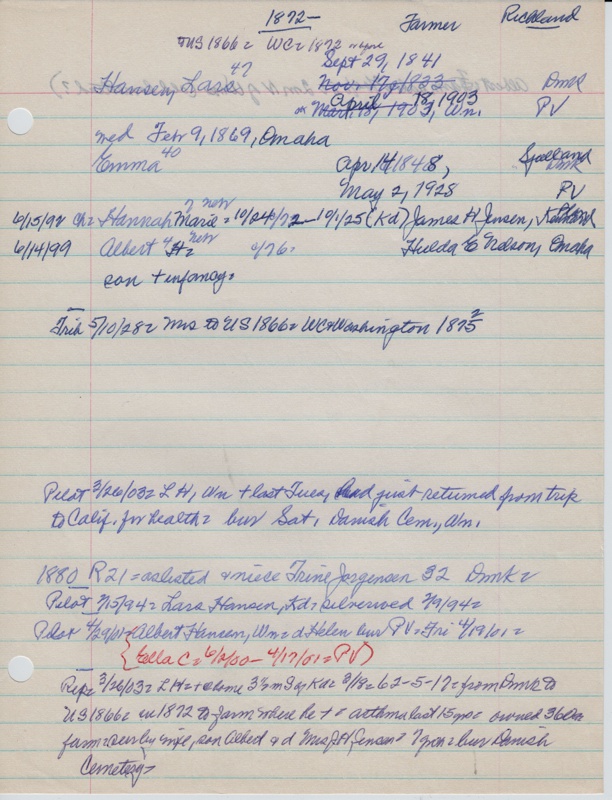 1872- Farmer Richland
TUS 1866= WC= 1872
Sept 29, 1841
Hansen, Lars 47 Nov. 17, 1833 Dmk
April 18, 1903
or Mart. 18, 1903, Wn. PV
md Febr 9, 1869, Omaha
Emma 40 Apr 14 1848, Sjælland Dmk
May 2, 1928 PV
6/15/92 ch= Hannah Marie 7 new = 10/24/72 - 10/1/25 (Kd) James H. Jensen,
6/14/99 Albert 4 H= new 76= Hulda C Nelson, Omaha
son + infancy=
Trib 5/10/28= Mrs to US 1866= WC+Washington 1875 2
Pilot 3/26/03= L H, Wn + last Tues, had just returned from trip
to Calif. for health= bur Sat, Danish Cem., Wn.
1880 R21 = as listed & niece Trine Jorgensen 32 Dmk=
Pilot 2/15/94= Lars Hansen, Kd= silverwed 2/9/94=
Pilot 4/29/01= Albert Hansen, Wn= d Helen bur PV= Fri 4/19/01=
(Ella C= 6/2/00- 4/17/01= PV)
Rep= 3/26/03= L H= + home 3½ m of Kd= 3/18= 62-5-17= from Dmk to
US 1866= in 1872 to farm where he + = asthma last 15 mos= owned 360a
farm= sur by wife, son Albert & d Mrs J H Jensen= bur Danish
Cemetery=